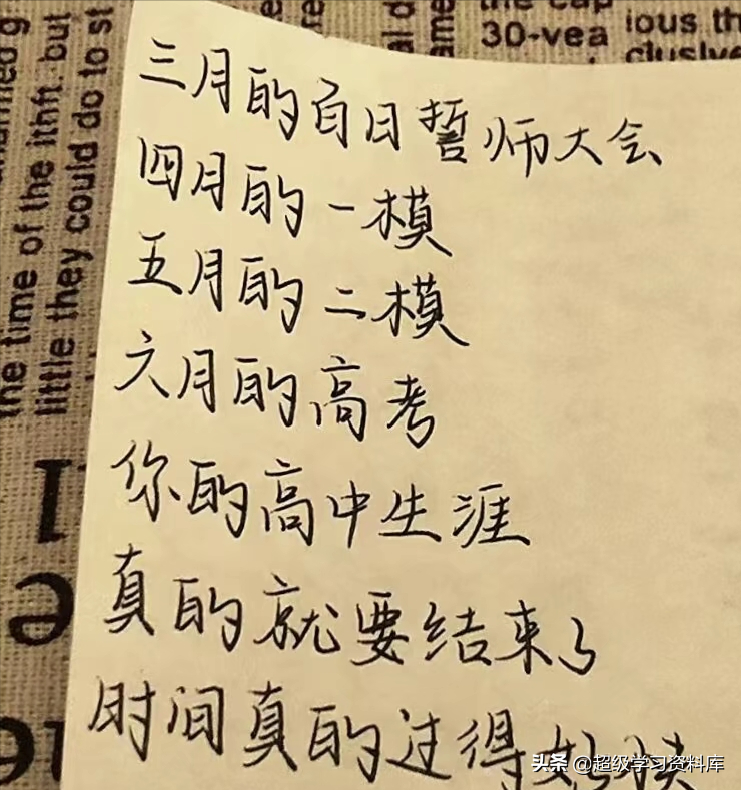 三月的百日誓师大会
四月的一模
五月的二模
六月的高考
你的高中生涯
真的就要结束了
时间真的过得好快
头条 @超级学习资料库
the time of the
little they could do to st
30-yea
ious th
clusive